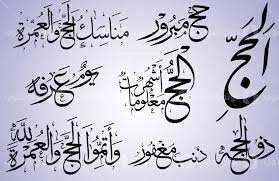 الحَجّ
حج مبرور
مناسك الحج والعمرة
الحج أشهر معلومات
يوم عرفة
ذو الحجة
ذنب مغفور
وأتموا الحج والعمرة لله